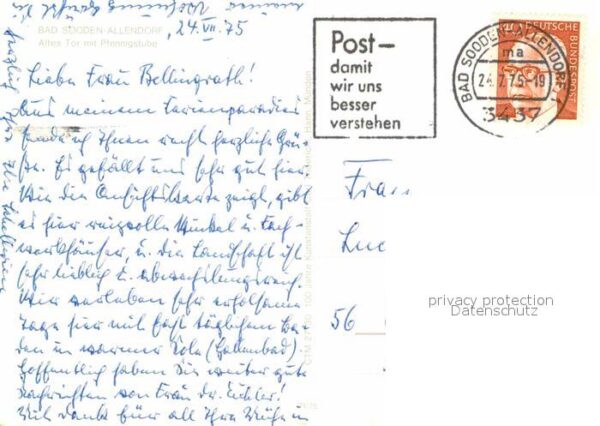 BAD SOODEN-ALLENDORF
Altes Tor mit Pfennigstube
24. VII. 75
Liebe Frau Bellingrath!
Aus meinem Ferienparadies
sende ich Ihnen recht herzliche Grü-
ße. Es gefällt uns sehr gut hier.
Wie die Ansichtskarte zeigt, gibt
es hier reizvolle Winkel u. Fach-
werkhäuser, u. die Landschaft ist
sehr lieblich u. abwechslungsreich.
Wir verleben sehr erholsame
Tage hier mit fast täglichem Ba-
den in warmer Sole (Hallenbad)
Hoffentlich haben Sie weiter gute
Nachrichten von Frau Dr. Eichler!
Viel Dank für all Ihre Mühe in
Post-
damit
wir uns
besser
verstehen
BAD SOODEN-ALLENDORF 1
ma
24.7.75-19
3437
DEUTSCHE
BUNDESPOST
Frau
56
privacy protection
Datenschutz